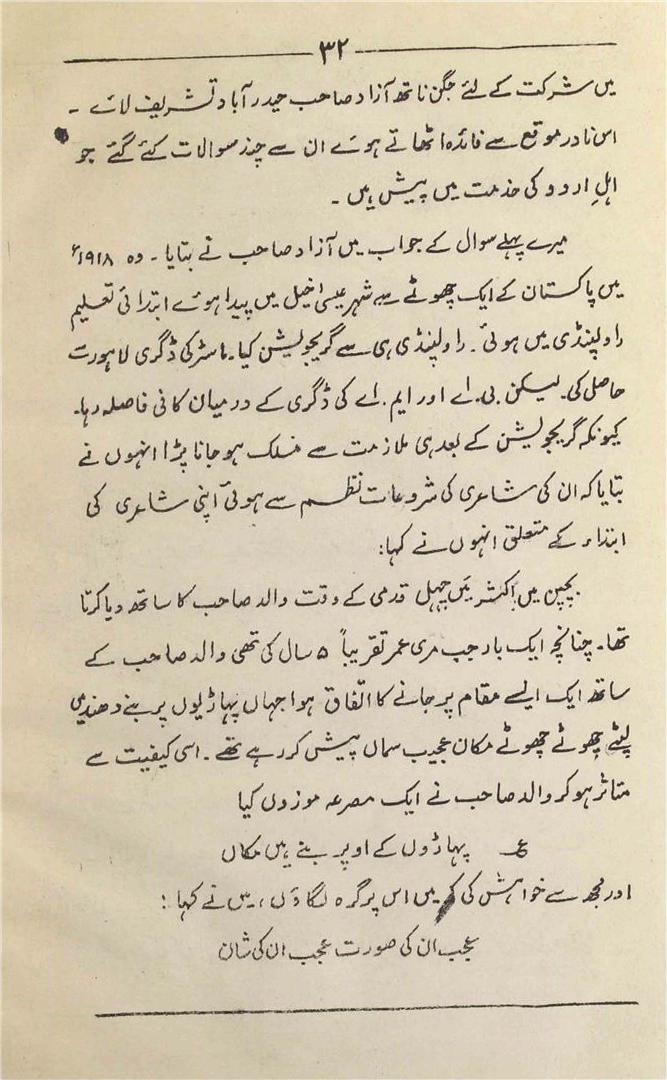 ۳۲
میں شرکت کے لئے جگن ناتھ آزاد صاحب حیدرآباد تشریف لائے ۔
اس نادر موقع سے فائدہ اٹھاتے ہوئے ان سے چند سوالات کئے گئے جو
اہلِ اردو کی خدمت میں پیش ہیں ۔
میرے پہلے سوال کے جواب میں آزاد صاحب نے بتایا ۔ وہ ۱۹۱۸ء
میں پاکستان کے ایک چھوٹے سے شہر عیسیٰ خیل میں پیدا ہوئے ابتدائی تعلیم
راولپنڈی میں ہوئی ۔ راولپنڈی ہی سے گریجویشن کیا ۔ ماسٹر کی ڈگری لاہور سے
حاصل کی ۔ لیکن بی ۔ اے اور ایم ۔ اے کی ڈگری کے درمیان کافی فاصلہ رہا ۔
کیونکہ گریجویشن کے بعد ہی ملازمت سے منسلک ہو جانا پڑا انہوں نے
بتایا کہ ان کی شاعری کی شروعات نظم سے ہوئی اپنی شاعری کی
ابتداء کے متعلق انہوں نے کہا :
بچپن میں اکثر میں چہل قدمی کے وقت والد صاحب کا ساتھ دیا کرتا
تھا ۔ چنانچہ ایک بار جب مری عمر تقریباً ۵ سال کی تھی والد صاحب کے
ساتھ ایک ایسے مقام پر جانے کا اتفاق ہوا جہاں پہاڑیوں پر بنے دھند میں
لپٹے چھوٹے چھوٹے مکان عجیب سماں پیش کر رہے تھے ۔ اسی کیفیت سے
متاثر ہو کر والد صاحب نے ایک مصرعہ موزوں کیا
ع پہاڑوں کے اوپر بنے ہیں مکاں
اور مجھ سے خواہش کی کہ میں اس پر گرہ لگاؤں ، میں نے کہا :
عجب ان کی صورت عجب ان کی شان